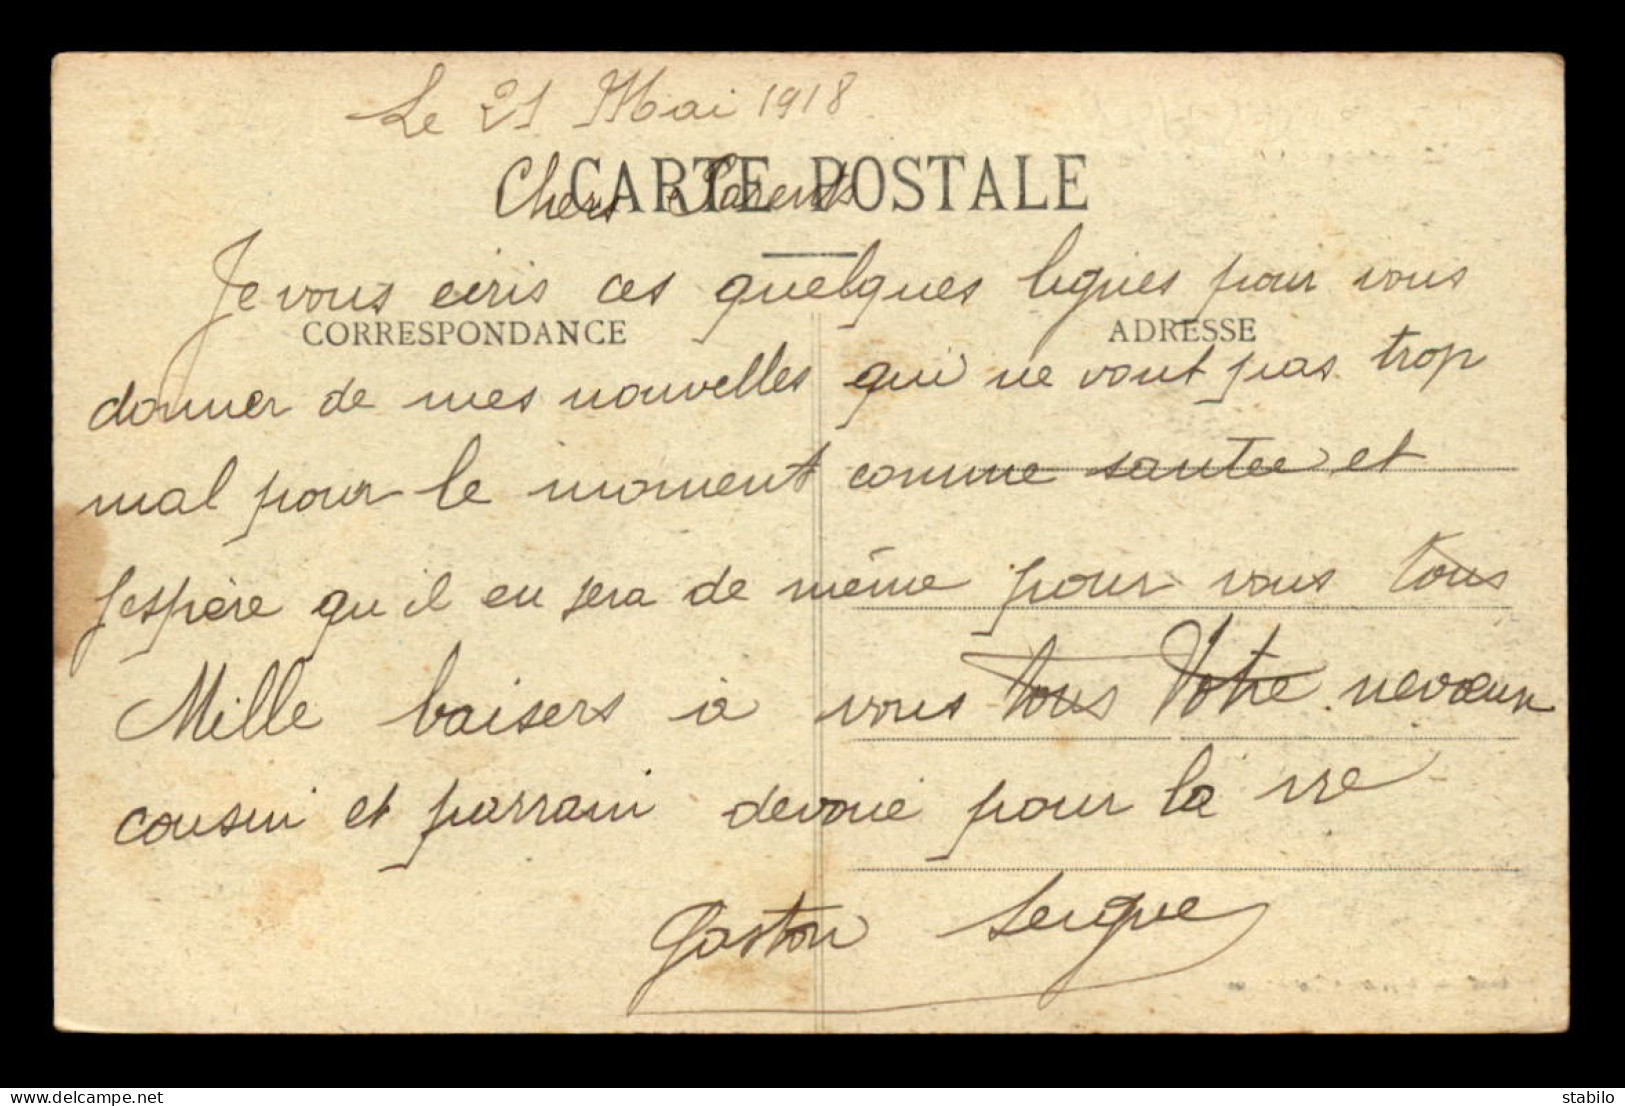 Le 21 Mai 1918
CARTE POSTALE
Chers Parents
Je vous ecris ces quelques lignes pour vous
CORRESPONDANCE
ADRESSE
donner de mes nouvelles qui ne vont pas trop
mal pour le moment comme santee et
j'espère qu'il en sera de même pour vous tous
Mille baisers à vous tous Votre neveux
cousin et parrain devoué pour la vie
Gaston
www.delcampe.net
stabilo